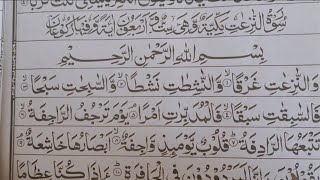 سُوْرَةُ النّٰزِعٰتِ مَكِّيَّةٌ وَّهِيَ سِتٌّ وَّاَرْبَعُوْنَ اٰيَةً وَّفِيْهَا رُكُوْعَانِ
بِسْمِ اللّٰهِ الرَّحْمٰنِ الرَّحِيْمِ
وَالنّٰزِعٰتِ غَرْقًا ۙ۝۱ وَّالنّٰشِطٰتِ نَشْطًا ۙ۝۲ وَّالسّٰبِحٰتِ سَبْحًا ۙ۝۳
فَالسّٰبِقٰتِ سَبْقًا ۙ۝۴ فَالْمُدَبِّرٰتِ اَمْرًا ۘ۝۵ يَوْمَ تَرْجُفُ الرَّاجِفَةُ ۙ۝۶
تَتْبَعُهَا الرَّادِفَةُ ؕ۝۷ قُلُوْبٌ يَّوْمَئِذٍ وَّاجِفَةٌ ۙ۝۸ اَبْصَارُهَا خَاشِعَةٌ ۘ۝۹
لَمَرْدُوْدُوْنَ فِي الْحَافِرَةِ ؕ۝۱۰ ءَاِذَا كُنَّا عِظَامًا